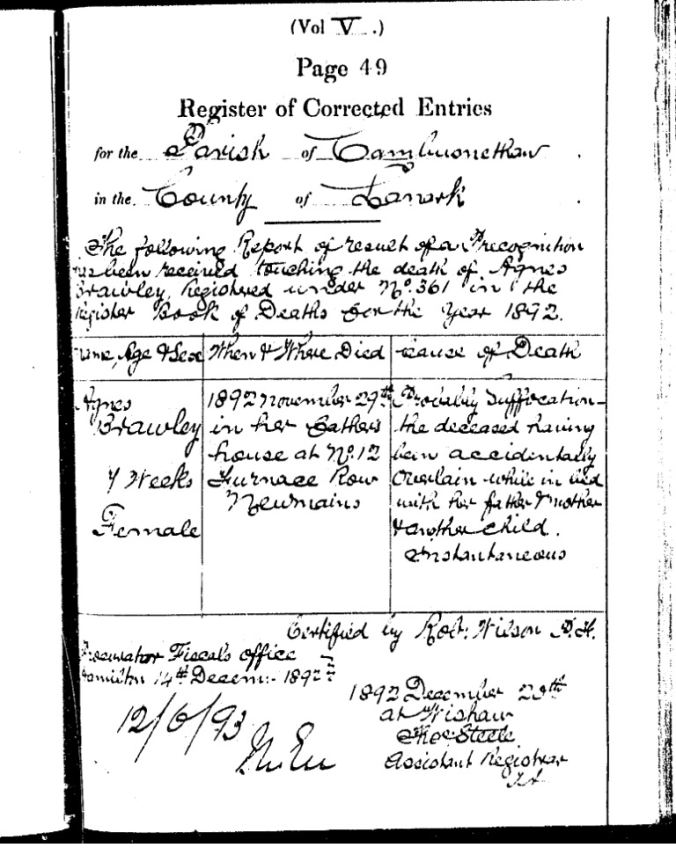 (Vol V.)
Page 49
Register of Corrected Entries
for the Parish of Cambusnethan
in the County of Lanark
The following Report of result of a Precognition
has been received touching the death of Agnes
Brawley, Registered under No. 361 in the
Register Book of Deaths for the Year 1892.
Name, Age & Sex When & Where Died Cause of Death
Agnes
Brawley
7 Weeks
Female
1892 November 29th
in her Fathers
house at No. 12
Furnace Row
Newmains
Probably Suffocation
the deceased having
been accidentally
Overlain while in bed
with her father & mother
& another child.
Instantaneous
Certified by Robt. Wilson P.F.
Procurator Fiscal's Office
Hamilton 14th Decem:- 1892
1892 December 29th
at Wishaw
Thos Steele
Assistant Registrar
12/6/93